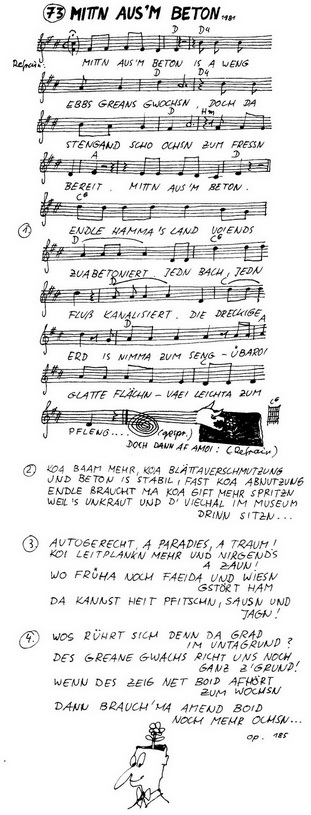 73 MITTN AUS'M BETON 1981
D D4
Refrain: MITTN AUS'M BETON IS A WENG
D D4
EBBS GREANS GWOCHSN, DOCH DA
D Hm
STENGAND SCHO OCHSN ZUM FRESSN
A D
BEREIT. MITTN AUS'M BETON.
C6
① ENDLE HAMMA'S LAND VOIENDS
D C6
ZUABETONIERT. JEDN BACH, JEDN
D C
FLUß KANALISIERT. DIE DRECKIGE
D A
ERD IS NIMMA ZUM SENG - ÜBAROI
C
GLATTE FLÄCHN - VAEI LEICHTA ZUM
C6
PFLENG.... (gespr.)
DOCH DANN AF AMOI: (Refrain)
② KOA BAAM MEHR, KOA BLÄTTAVERSCHMUTZUNG
UND BETON IS STABIL, FAST KOA ABNUTZUNG
ENDLE BRAUCHT MA KOA GIFT MEHR SPRITZN
WEIL'S UNKRAUT UND D' VIECHAL IM MUSEUM
DRINN SITZN...
③ AUTOGERECHT, A PARADIES, A TRAUM!
KOI LEITPLANKN MEHR UND NIRGENDS
A ZAUN!
WO FRÜHA NOCH FAEIDA UND WIESN
GSTÖRT HAM
DA KANNST HEIT PFITSCHN, SAUSN UND
JAGN!
④ WOS RÜHRT SICH DENN DA GRAD
IM UNTAGRUND?
DES GREANE GWACHS RICHT UNS NOCH
GANZ Z'GRUND!
WENN DES ZEIG NET BOID AFHÖRT
ZUM WOCHSN
DANN BRAUCH'MA AMEND BOID
NOCH MEHR OCHSN...
op. 185